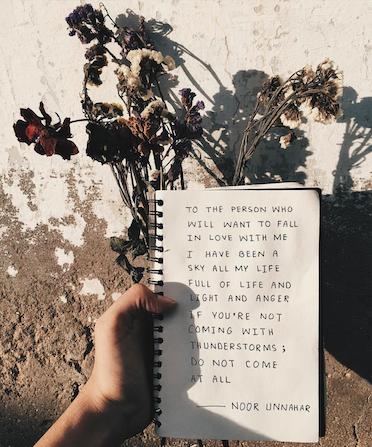 TO THE PERSON WHO
WILL WANT TO FALL
IN LOVE WITH ME
I HAVE BEEN A
SKY ALL MY LIFE
FULL OF LIFE AND
LIGHT AND ANGER
IF YOU'RE NOT
COMING WITH
THUNDERSTORMS;
DO NOT COME
AT ALL
— NOOR UNNAHAR